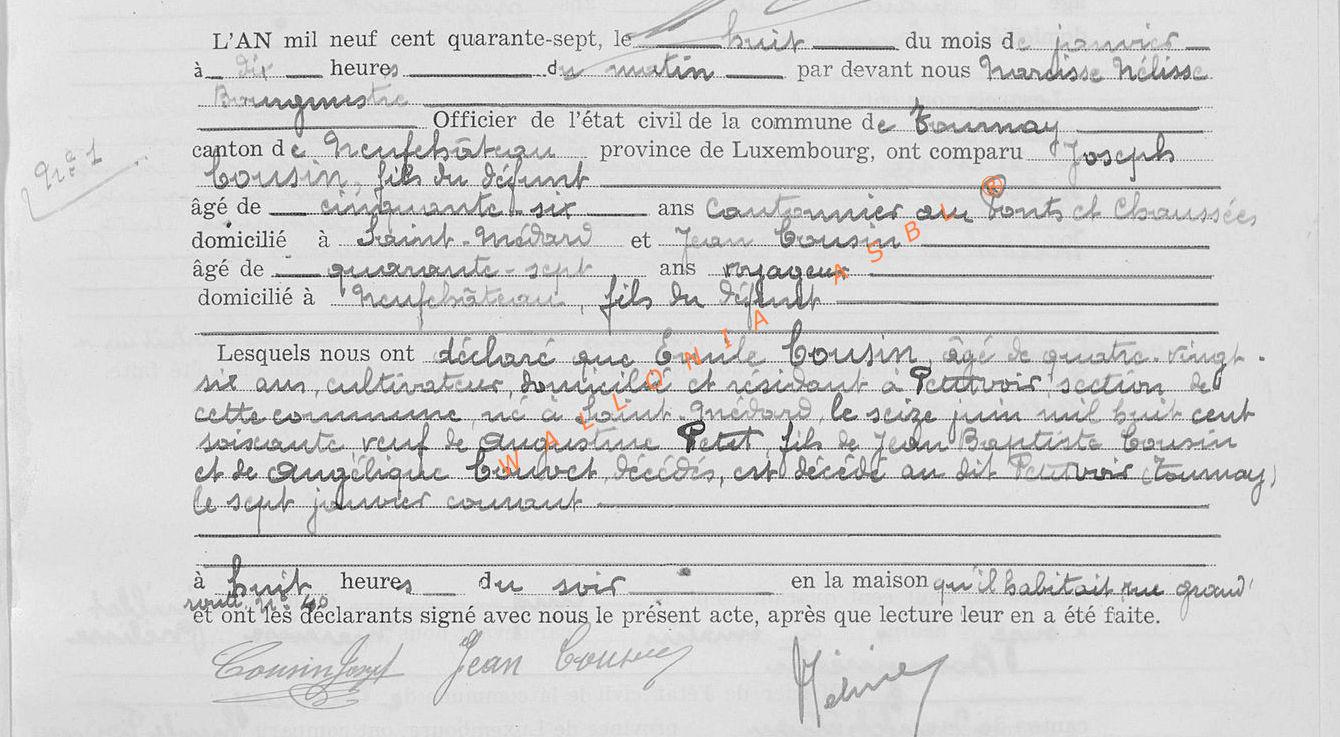 L'AN mil neuf cent quarante-sept, le huit du mois de janvier
à dix heures du matin par devant nous Narcisse Hélisse
Bourgmestre
Officier de l'état civil de la commune de Tournay
canton de Neufchâteau province de Luxembourg, ont comparu Joseph
N° 1
Cousin, fils du défunt
âgé de cinquante-six ans cantonnier au Ponts et Chaussées
domicilié à Saint-Médard et Jean Cousin
âgé de quarante-sept ans voyageur
domicilié à Neufchâteau, fils du défunt
Lesquels nous ont déclaré que Emile Cousin, âgé de quatre-vingt-
six ans, cultivateur, domicilié et résidant à Petitvoir, section de
cette commune, né à Saint-Médard, le seize juin mil huit cent
soixante veuf de Augustine Petit, fils de Jean Baptiste Cousin
et de Angélique, décédés, est décédé au dit Petitvoir (Tournay)
le sept janvier courant
à huit heures du soir en la maison qu'il habitait rue grand'
route, N° 40
et ont les déclarants signé avec nous le présent acte, après que lecture leur en a été faite.
Cousin Jean Cousin
WALLONIA ASBL ®